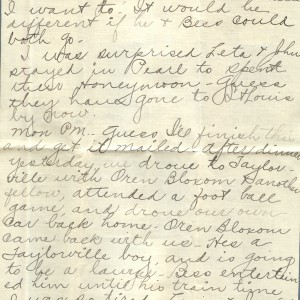 I want to. It would be
different if he & Bess could
both go.
I was surprised Leta & John
stayed in Pearl to spent
their Honeymoon - Guess
they have gone to St Louis
by now.
Mon PM. Guess I'll finish this
and get it mailed. After dinner
yesterday, we drove to Taylor-
ville with Oren Bloxom &
fellow, attended a foot ball
game, and drove our own
car back home. Oren Bloxom
came back with us. Hes a
Taylorville boy, and is going
to be a lawyer. Bess entertain
ed him until his train time
I was so tired